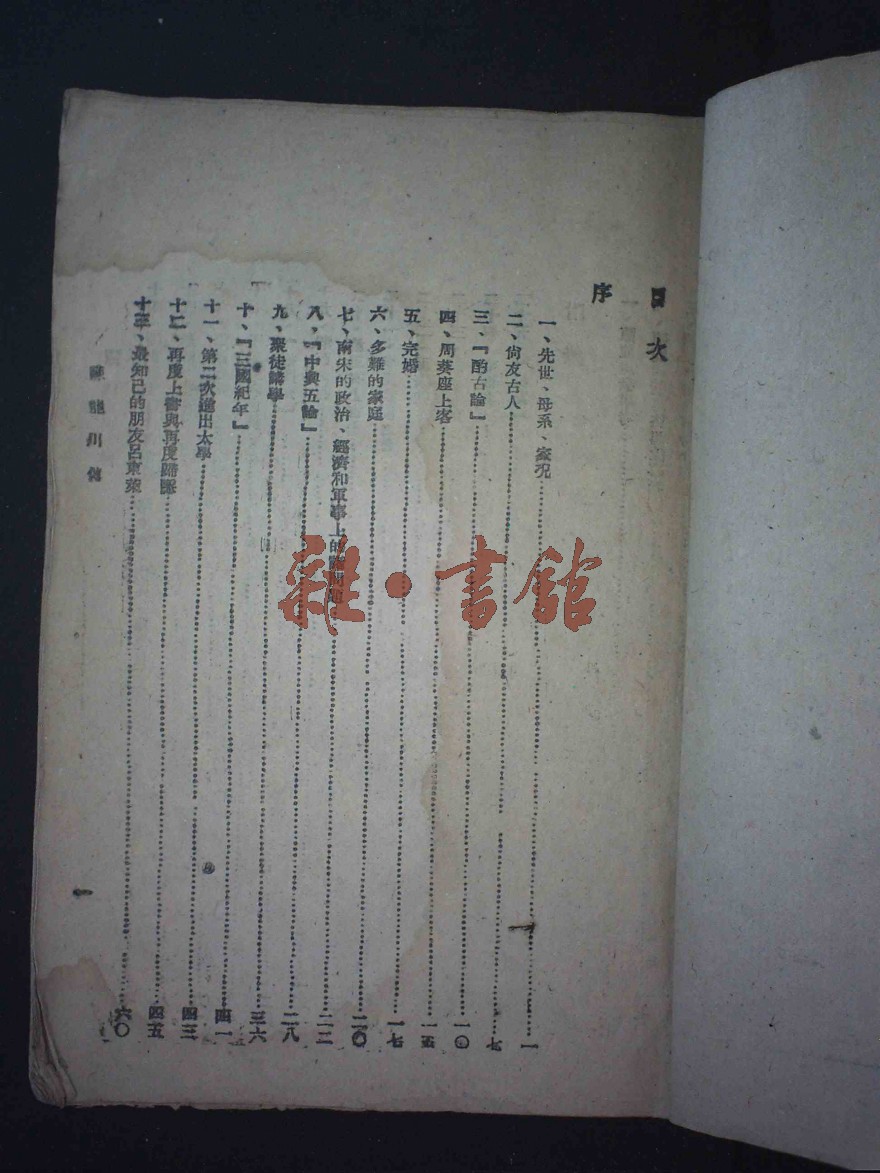 目次
序
一、先世、母系、家況……一
二、尙友古人……七
三、『酌古論』……一〇
四、周葵座上客……一五
五、完婚……一七
六、多難的家庭……二〇
七、南宋的政治、經濟和軍事上的問題……二二
八、『中興五論』……二八
九、聚徒講學……三六
十、『三國紀年』……四一
十一、第二次進出太學……四三
十二、再度上書與再度歸……四五
十三、最知己的朋友呂東萊……六〇
陳龍川傳
一
雜·書館